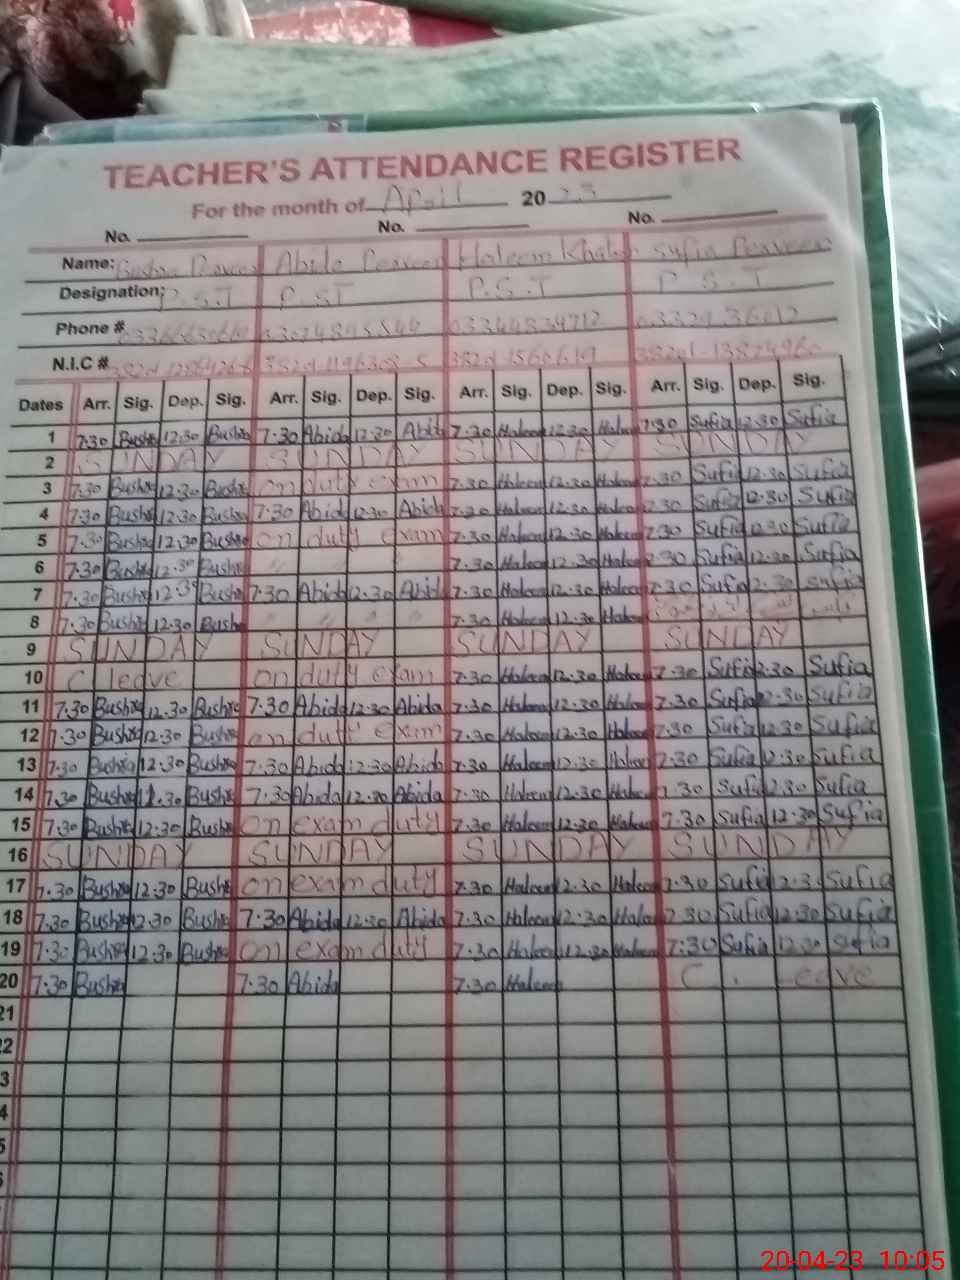 TEACHER'S ATTENDANCE REGISTER
For the month of April 2023
No. No. No.
Name: Bushra Perveen Abida Perveen Haleem Khatoon Sufia Perveen
Designation: P.S.T P.S.T P.S.T P.S.T
Phone #
N.I.C #
Dates Arr. Sig. Dep. Sig. Arr. Sig. Dep. Sig. Arr. Sig. Dep. Sig. Arr. Sig. Dep. Sig.
1 7:30 Bushra 12:30 Bushra 7:30 Abida 12:30 Abida 7:30 Haleem 12:30 Haleem 7:30 Sufia 12:30 Sufia
2 SUNDAY SUNDAY SUNDAY SUNDAY
3 7:30 Bushra 12:30 Bushra on duty exam 7:30 Haleem 12:30 Haleem 7:30 Sufia 12:30 Sufia
4 7:30 Bushra 12:30 Bushra 7:30 Abida 12:30 Abida 7:30 Haleem 12:30 Haleem 7:30 Sufia 12:30 Sufia
5 7:30 Bushra 12:30 Bushra on duty exam 7:30 Haleem 12:30 Haleem 7:30 Sufia 12:30 Sufia
6 7:30 Bushra 12:30 Bushra " " " " 7:30 Haleem 12:30 Haleem 7:30 Sufia 12:30 Sufia
7 7:30 Bushra 12:30 Bushra 7:30 Abida 12:30 Abida 7:30 Haleem 12:30 Haleem 7:30 Sufia 12:30 Sufia
8 7:30 Bushra 12:30 Bushra " " " " 7:30 Haleem 12:30 Haleem
9 SUNDAY SUNDAY SUNDAY SUNDAY
10 C leve on duty exam 7:30 Haleem 12:30 Haleem 7:30 Sufia 12:30 Sufia
11 7:30 Bushra 12:30 Bushra 7:30 Abida 12:30 Abida 7:30 Haleem 12:30 Haleem 7:30 Sufia 12:30 Sufia
12 7:30 Bushra 12:30 Bushra on duty exam 7:30 Haleem 12:30 Haleem 7:30 Sufia 12:30 Sufia
13 7:30 Bushra 12:30 Bushra 7:30 Abida 12:30 Abida 7:30 Haleem 12:30 Haleem 7:30 Sufia 12:30 Sufia
14 7:30 Bushra 12:30 Bushra 7:30 Abida 12:30 Abida 7:30 Haleem 12:30 Haleem 7:30 Sufia 12:30 Sufia
15 7:30 Bushra 12:30 Bushra on exam duty 7:30 Haleem 12:30 Haleem 7:30 Sufia 12:30 Sufia
16 SUNDAY SUNDAY SUNDAY SUNDAY
17 7:30 Bushra 12:30 Bushra on exam duty 7:30 Haleem 12:30 Haleem 7:30 Sufia 12:30 Sufia
18 7:30 Bushra 12:30 Bushra 7:30 Abida 12:30 Abida 7:30 Haleem 12:30 Haleem 7:30 Sufia 12:30 Sufia
19 7:30 Bushra 12:30 Bushra on exam duty 7:30 Haleem 12:30 Haleem 7:30 Sufia 12:30 Sufia
20 7:30 Bushra 7:30 Abida 7:30 Haleem C. Leave
21
20-04-23 10:05